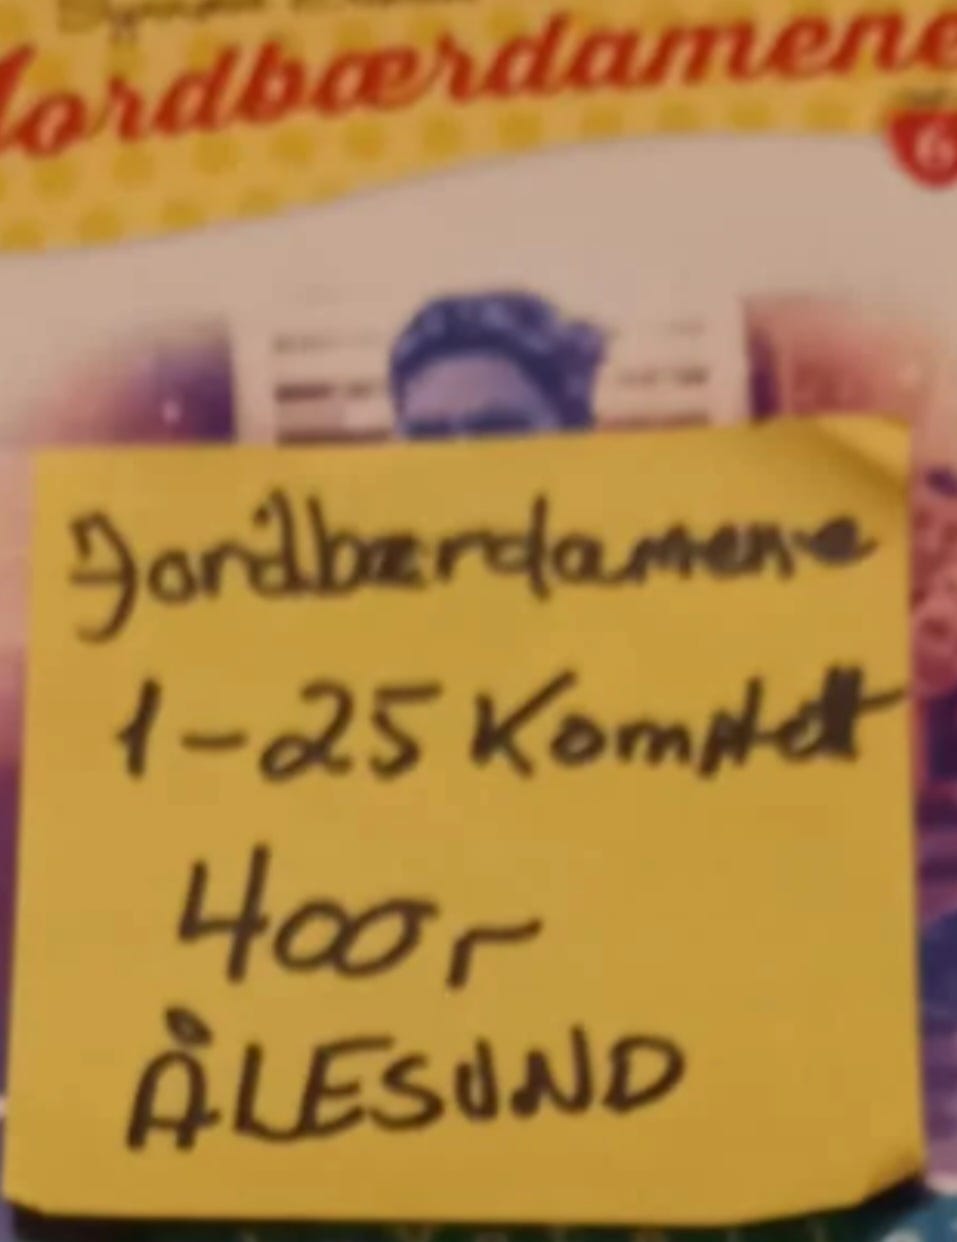 Jordbærdamene
6
Jordbærdamene
1-25 Komplett
400,-
ÅLESUND